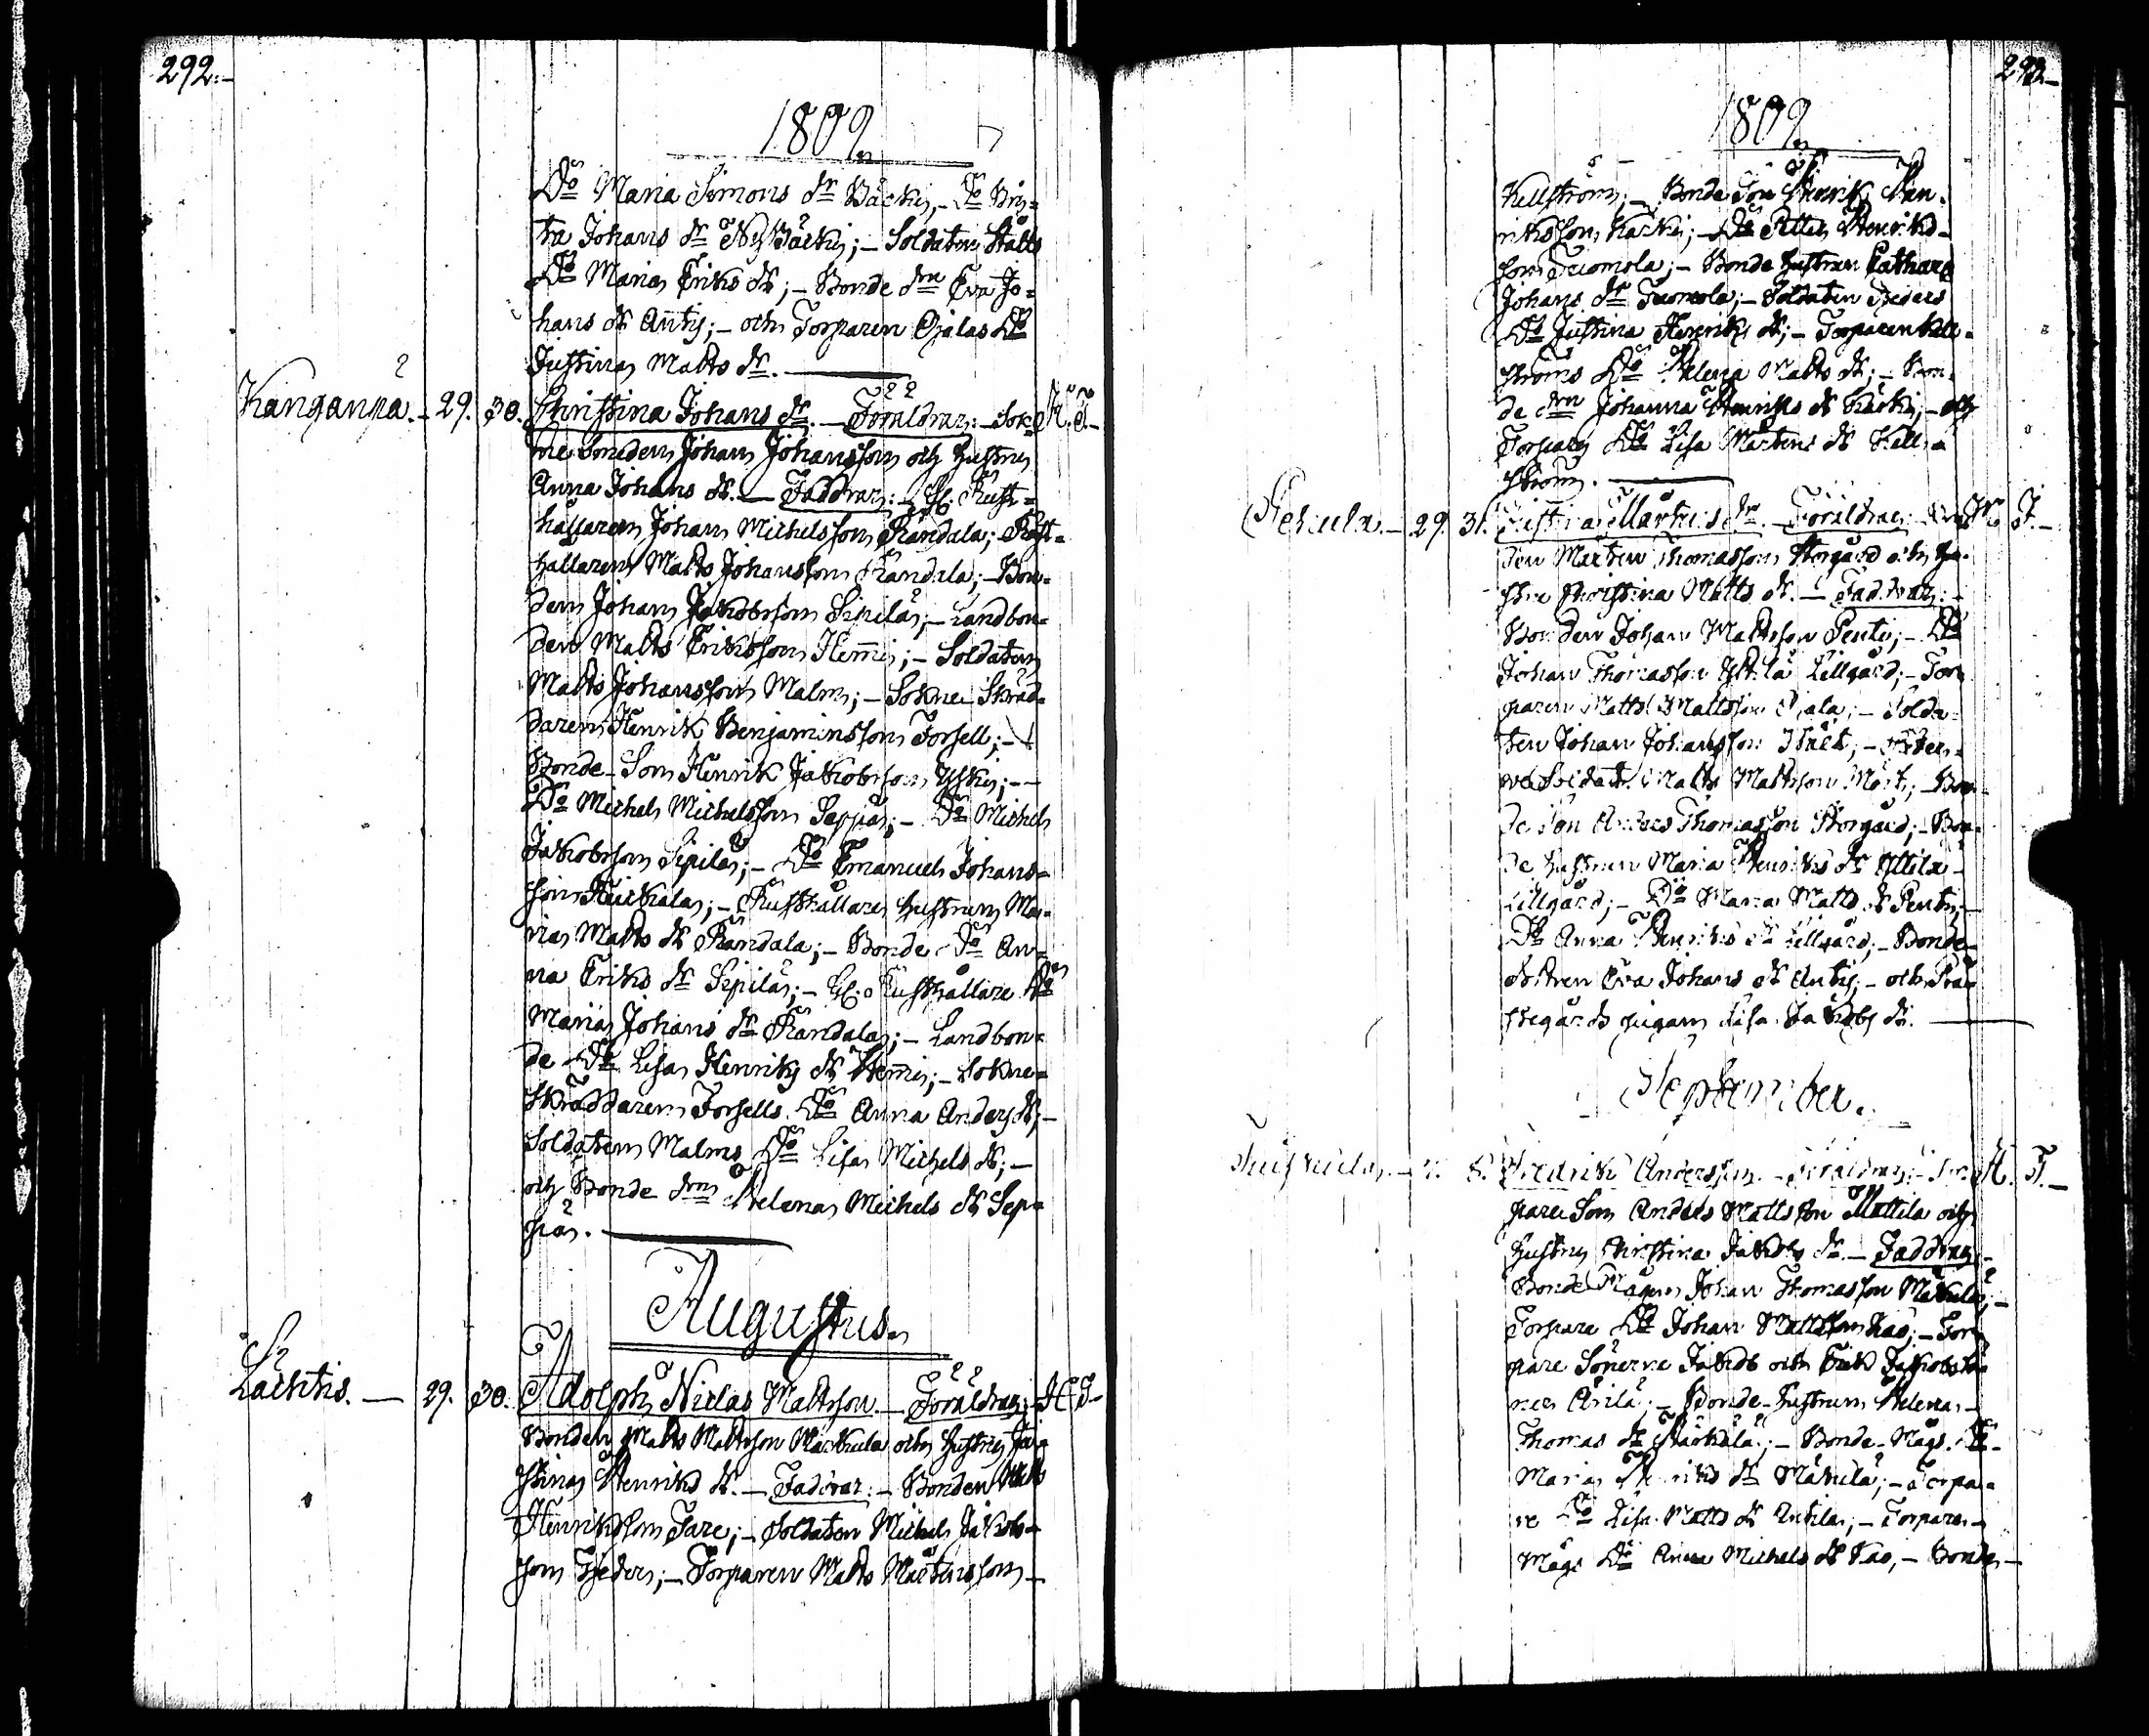 292.
1809.
Do Maria Simons dr Bäcki, – Do Bri=
ta Johans dr Nybäcki; – Soldaten Ståls
Do Maria Eriks dr; – Bonde drn Eva Jo=
hans dr Anti; – och Torparen Ojalas Do
Justina Matts dr.
Kanganpä. – 29. 30. Christina Johans dr. – Föräldrar: – Sok= Ä. F. –
ne Smeden Johan Johansson och hustru
Anna Johans dr. – Faddrar: – Gl. Rust=
hållaren Johan Michelsson Rändälä; – Rust=
hållaren Matts Johansson Rändälä; – Bon=
den Johan Jakobsson Sipilä; – Landbon=
den Matts Eriksson Hemmi; – Soldaten
Matts Johansson Malm; – Sokne Skräd=
daren Henrik Benjaminsson Forsell; –
Bonde-Son Henrik Jakobsson Yski; –
Do Michel Michelsson Seppä; – Do Michel
Jakobsson Sipilä; – Do Emanuel Johans=
son Heickala; – Rusthållare hustrun Ma=
ria Matts dr Rändälä; – Bonde Do An=
na Eriks dr Sipilä; – Gl. Rusthållare Do
Maria Johans dr Rändälä; – Landbon=
de Do Lisa Henriks dr Hemmi; – Sokne=
skräddaren Forsells Do Anna Anders dr; –
Soldaten Malms Do Lisa Michels dr; –
och Bonde drn Helena Michels dr Sep=
pä.
Augustus.
Lachtis. – 29. 30. Adolph Niclas Mattsson. – Föräldrar: – Ä F –
Bonden Matts Mattsson Markula och hustru Ju=
stina Henriks dr. – Faddrar: – Bonden Matts
Henriksson Tare; – Soldaten Michel Jakobs=
son Fjeder; – Torparen Matts Mårtensson
293.
1809.
Kellström; – Bonde Son Henrik Hen=
riksson Kärki; – Do Petter Henriks=
son Tuomola; – Bonde hustrun Cathar.
Johans dr Tuomola; – Soldaten Fjeders
Do Justina Henriks dr; – Torparen Kell=
ströms Do Helena Matts dr; – Bon=
de drn Johanna Henriks dr Kärki; – och
Torpare Do Lisa Mårtens dr Kell=
ström.
29. 31. Justina Mårtens dr. – Föräldrar: – F. –
den Mårten Thomasson Storgård och hu=
stru Christina Matts dr. – Faddrar: –
Bonden Johan Mattsson Penti; – Do
Johan Thomasson Lillgård; – Tor=
paren Matts Mattsson Ojala; – Solda=
ten Johan Johansson Stål; –
Soldat. Matts Mattsson Mört; – Bon=
de Son Anders Thomasson Storgård; – Bon=
de hustrun Maria Henriks dr
Lillgård; – Do Maria Matts dr Penti; –
Do Anna Henriks dr Lillgård; – Bonde
dottren Eva Johans dr Anti; – och Prä=
stegårds pigan Lisa Jakobs dr.
September.
Fredrik Andersson. – Föräldrar: – Tor= Ä. F. –
pare Son Anders Mattsson Mattila och
hustru Christina Jakobs dr. – Faddrar: –
Bonde Mågen Johan Thomasson Mäkilä; –
Torpare Do Johan Mattsson Kao; – Tor=
pare Sönerne Jakob och Erik Jakobs Sö=
ner Anila; – Bonde-hustrun Helena
Thomas dr Mäkilä; – Bonde-Mågs Do
Maria Henriks dr Mäkilä; – Torpa=
re Do Lisa Matts dr Antila; – Torpare
Mågs Do Anna Michels dr Kao; – Bonde